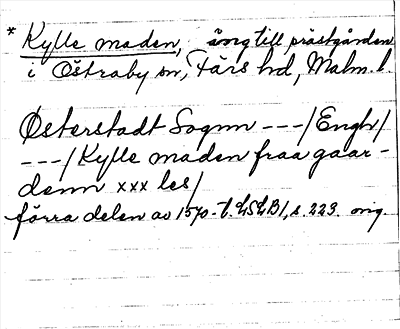 * Kylle maden, äng till prästgården
i Östraby sn, Färs hd, Malm. l.
Østerstadt Sognn ---/Engh/
---/Kylle maden fraa gaar-
denn xxx les/
förra delen av 1570-t. LSLB1, s. 223. orig.